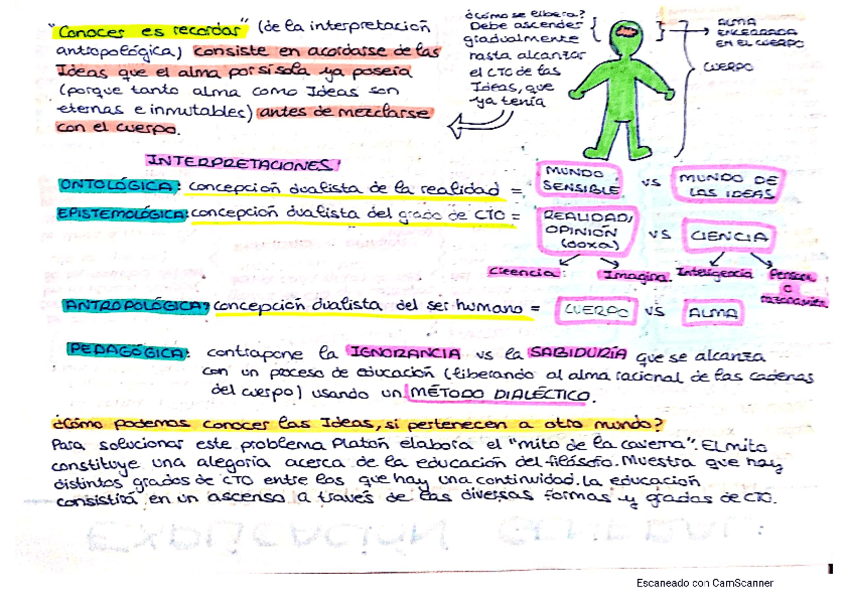 "Conocer es recordar" (de la interpretación
antropológica) consiste en acordarse de las
Ideas que el alma por sí sola ya poseía
(porque tanto alma como Ideas son
eternas e inmutables) antes de mezclarse
con el cuerpo.
¿Cómo se libera?
Debe ascender
gradualmente
hasta alcanzar
el CTO de las
Ideas, que
ya tenía
ALMA
ENCERRADA
EN EL CUERPO
CUERPO
INTERPRETACIONES:
ONTOLÓGICA: concepción dualista de la realidad = MUNDO SENSIBLE vs MUNDO DE LAS IDEAS
EPISTEMOLÓGICA: concepción dualista del grado de CTO = REALIDAD/ OPINIÓN (doxa) vs CIENCIA
Creencia Imagina. Inteligencia Pensam. o razonamiento
ANTROPOLÓGICA: concepción dualista del ser humano = CUERPO vs ALMA
PEDAGÓGICA: contrapone la IGNORANCIA vs la SABIDURÍA que se alcanza
con un proceso de educación (liberando al alma racional de las cadenas
del cuerpo) usando un MÉTODO DIALÉCTICO.
¿Cómo podemos conocer las Ideas, si pertenecen a otro mundo?
Para solucionar este problema Platón elabora el "mito de la caverna". El mito
constituye una alegoría acerca de la educación del filósofo. Muestra que hay
distintos grados de CTO entre los que hay una continuidad. La educación
consistirá en un ascenso a través de las diversas formas y grados de CTO.
Escaneado con CamScanner